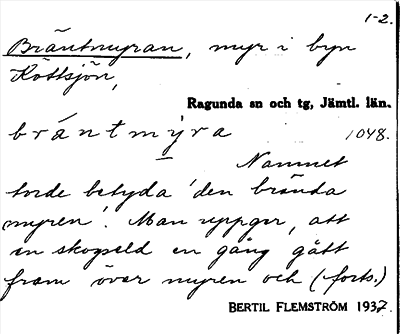 1-2.
Bräntmyran, myr i byn
Köttsjön,
Ragunda sn och tg, Jämtl. län.
bräntmýra 1048.
Namnet
torde betyda 'den brända
myren'. Man uppger, att
en skogseld en gång gått
fram över myren och (forts.)
BERTIL FLEMSTRÖM 1937.